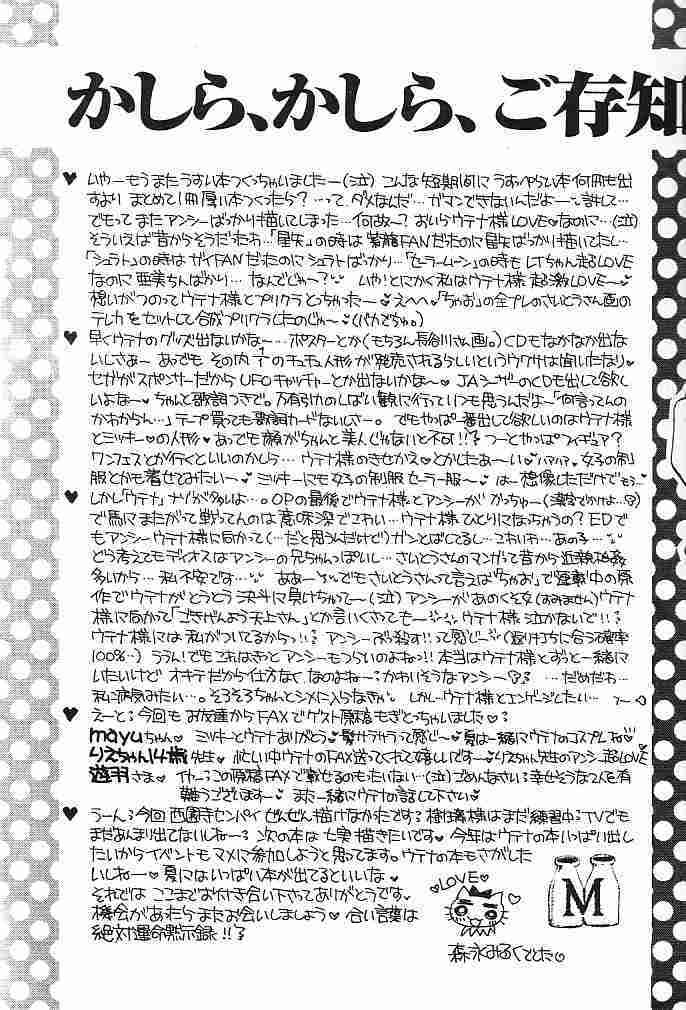 かしら、かしら、ご存知
♥ いやーもうまたうすい本つくっちゃいましたー(泣) こんな短期間にうすっぺらい本何冊も出
すより まとめて1冊厚い本つくったら？…って ダメなんだ… ガマンできないんだよー…許して…
でもって またアンシーばっかり描いてしまった…何故〜？ おいらウテナ様LOVE♥なのに…(泣)
そういえば昔からそうだったわ…「星矢」の時は 紫龍FANだったのに星矢ばっかり描いてたし…
「シュラト」の時はガイFANだったのにシュラトばかり…「セーラームーン」の時もLTちゃん超LOVE
なのに 亜美ちんばかり… なんでじゃ〜？ いや！とにかく私はウテナ様 超激LOVE〜♥
想いがつのってウテナ様とプリクラとっちった〜♥ えへへ♥「ちゃお」の全プレのさいとうさん画の
テレカをセットして合成プリクラしたのじゃ〜♥(バカでちゅ。)
♥ 早くウテナのグッズ出ないかな〜…ポスターとか(もちろん長谷川さん画。)CDもなかなか出な
いしさぁー あ、でも その内 チュチュ人形が発売されるらしいというウワサは聞いたなり♥
セガがスポンサーだから UFOキャッチャーとか出ないかな〜♥ JAシーザーのCDも出して欲し
いよな〜♥ちゃんと歌詞つきで。万有引力のしばい観に行っていつも思うんだよ〜「何言ってんの
かわからん…」テープ買っても歌詞カードないしさー。でもやっぱ一番出して欲しいのはウテナ様
とミッキー♥の人形♥ あっでも顔がちゃんと美人じゃないと不可!! つーとやっぱフィギュア？
ワンフェスとか行くといいのかしら… ウテナ様のきせかえ♥とかしたぁ〜い♥ハァハァ 女子の制
服とかも着せてみたいっ♥ ミッキーにも女子の制服セーラー服〜♥ はー想像しただけでもう…
♥ しかし「ウテナ」ナゾが多いよ…。OPの最後でウテナ様とアンシーが
で馬にまたがって戦ってんのは意味深でこわい…ウテナ様ひとりになっちゃうの？EDで
もアンシーウテナ様に向かって(…だと思うんだけど)ガンとばしてるし…こわいわ…あの子…
どう考えてもディオスはアンシーの兄ちゃんっぽいし…さいとうさんのマンガって昔から近親相姦
多いから…私不安です… ああー でもさいとうさんって言えば「ちゃお」で連載中の原
作でウテナがとうとう決斗に負けちゃって〜(泣)アンシーがあのくそ女(すみません)ウテナ
様に向かって「ごきげんよう天上さん」とか言いくさっても〜 ウテナ様泣かないで!!
ウテナ様には私がついてるから!! アンシーぶっ殺す!!って感じ〜(返り討ちに合う確率
100%…) ううん！でもこれはきっとアンシーもつらいのよね!! 本当はウテナ様とずっと一緒に
いたいけど オキテだから仕方なく なのよね〜 かわいそうなアンシー …だめだわ…
私に病気みたい…。そろそろちゃんとシメに入らなきゃ。しかしーウテナ様とエンゲージしたい…
♥ えーと：今回もお友達からFAXでゲスト原稿もぎとっちゃいました♥：
mayuちゃん♥ ミッキーとウテナありがとう♥髪サラサラって感じ〜♥夏は一緒にウテナのコスプレね♥
りえちゃん14歳先生♥ 忙しい中ウテナのFAX送ってくれて嬉しいです〜♥りえちゃん先生のアンシー超LOVE
遊羽さま♥ イヤーこの原稿FAXで載せるのもったいない…(泣)ごめんなさい：幸せそうな2人を有
難うございます〜♥ また一緒にウテナの話して下さい♥
♥ うーん：今回西園寺センパイぜんぜん描けなかたです：樹璃様はまだ練習中：TVでも
まだあんまり出てないしね〜：次の本は七実描きたいです♥ 今年はウテナの本いっぱい出し
たいからイベントもマメに参加しようと思ってます。ウテナの本もさがした
いしねー♥ 夏にはいっぱい本が出てるといいな♥
それでは ここまでお付き合い下さってありがとうです。
機会があったらまたお会いしましょう♥ 合い言葉は
絶対運命黙示録!!
♥LOVE♥
M
森永みるくでした♥